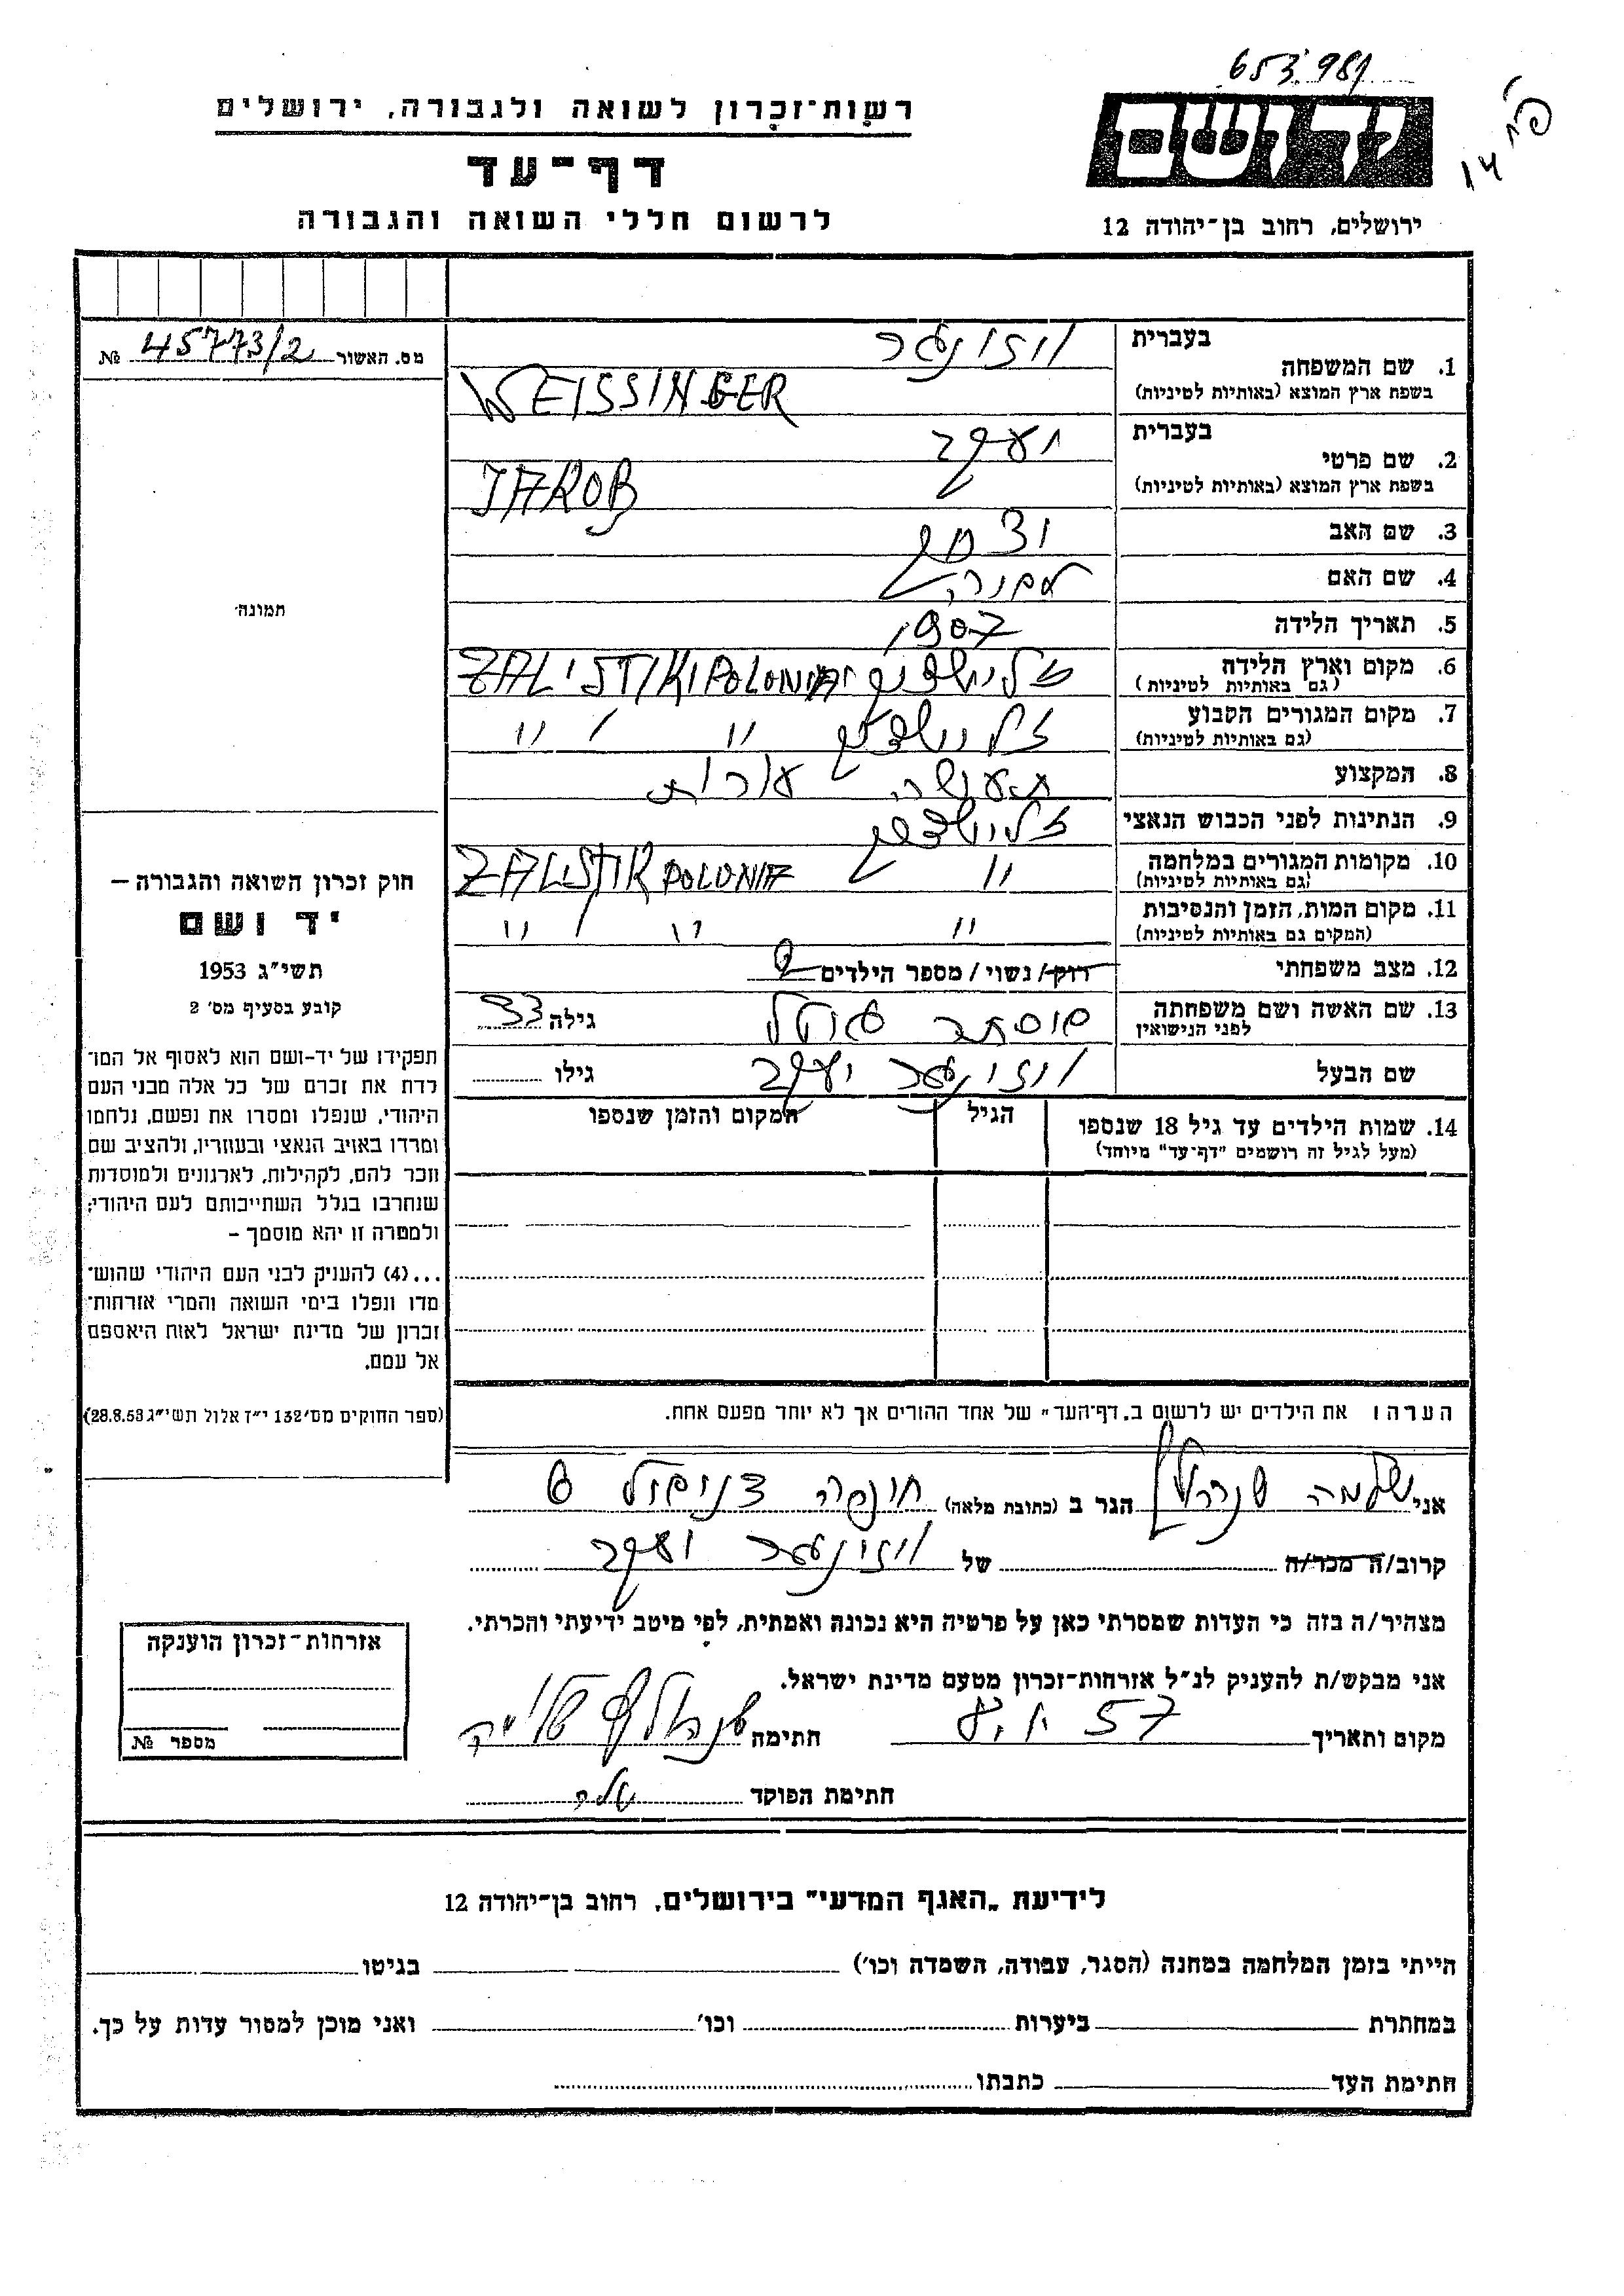 653.981
רשות־זכרון לשואה ולגבורה, ירושלים
דף־עד
לרשום חללי השואה והגבורה
יד ושם
ירושלים, רחוב בן־יהודה 12
מס. האשור 45773/2 №
תמונה
חוק זכרון השואה והגבורה –
יד ושם
תשי"ג 1953
קובע בסעיף מס' 2
תפקידו של יד-ושם הוא לאסוף אל המו־
לדת את זכרם של כל אלה מבני העם
היהודי, שנפלו ומסרו את נפשם, נלחמו
ומרדו באויב הנאצי ובעוזריו, ולהציב שם
וזכר להם, לקהילות, לארגונים ולמוסדות
שנחרבו בגלל השתייכותם לעם היהודי;
ולמטרה זו יהא מוסמך –
...(4) להעניק לבני העם היהודי שהוש־
מדו ונפלו בימי השואה והמרי אזרחות־
זכרון של מדינת ישראל לאות היאספם
אל עמם.
(ספר החוקים מס' 132 י"ז אלול תשי"ג 28.8.53)
בעברית
1. שם המשפחה
בשפת ארץ המוצא (באותיות לטיניות) WEISSINGER
בעברית יעקב
2. שם פרטי
בשפת ארץ המוצא (באותיות לטיניות) JAKOB
3. שם האב
4. שם האם
5. תאריך הלידה 1907
6. מקום וארץ הלידה
(גם באותיות לטיניות) POLONIA
7. מקום המגורים הקבוע " / " "
(גם באותיות לטיניות)
8. המקצוע עורות
9. הנתינות לפני הכבוש הנאצי
10. מקומות המגורים במלחמה " ZALISTIK POLONIA
(גם באותיות לטיניות)
11. מקום המות, הזמן והנסיבות " " / "
(המקום גם באותיות לטיניות)
12. מצב משפחתי רווק / נשוי / מספר הילדים
13. שם האשה ושם משפחתה גילה 33
לפני הנישואין
שם הבעל יעקב גילו
14. שמות הילדים עד גיל 18 שנספו הגיל המקום והזמן שנספו
(מעל לגיל זה רושמים "דף־עד" מיוחד)
הערה: את הילדים יש לרשום ב„דף־העד" של אחד ההורים אך לא יותר מפעם אחת.
אני הגר ב (כתובת מלאה) 6
קרוב/ה מכר/ה של יעקב
מצהיר/ה בזה כי העדות שמסרתי כאן על פרטיה היא נכונה ואמתית, לפי מיטב ידיעתי והכרתי.
אני מבקש/ת להעניק לנ"ל אזרחות־זכרון מטעם מדינת ישראל.
מקום ותאריך 57 חתימה
חתימת הפוקד
אזרחות־זכרון הוענקה
מספר №
לידיעת „האגף המדעי" בירושלים, רחוב בן־יהודה 12
הייתי בזמן המלחמה במחנה (הסגר, עבודה, השמדה וכו') בגיטו
במחתרת ביערות וכו' ואני מוכן למסור עדות על כך.
חתימת העד כתבתו